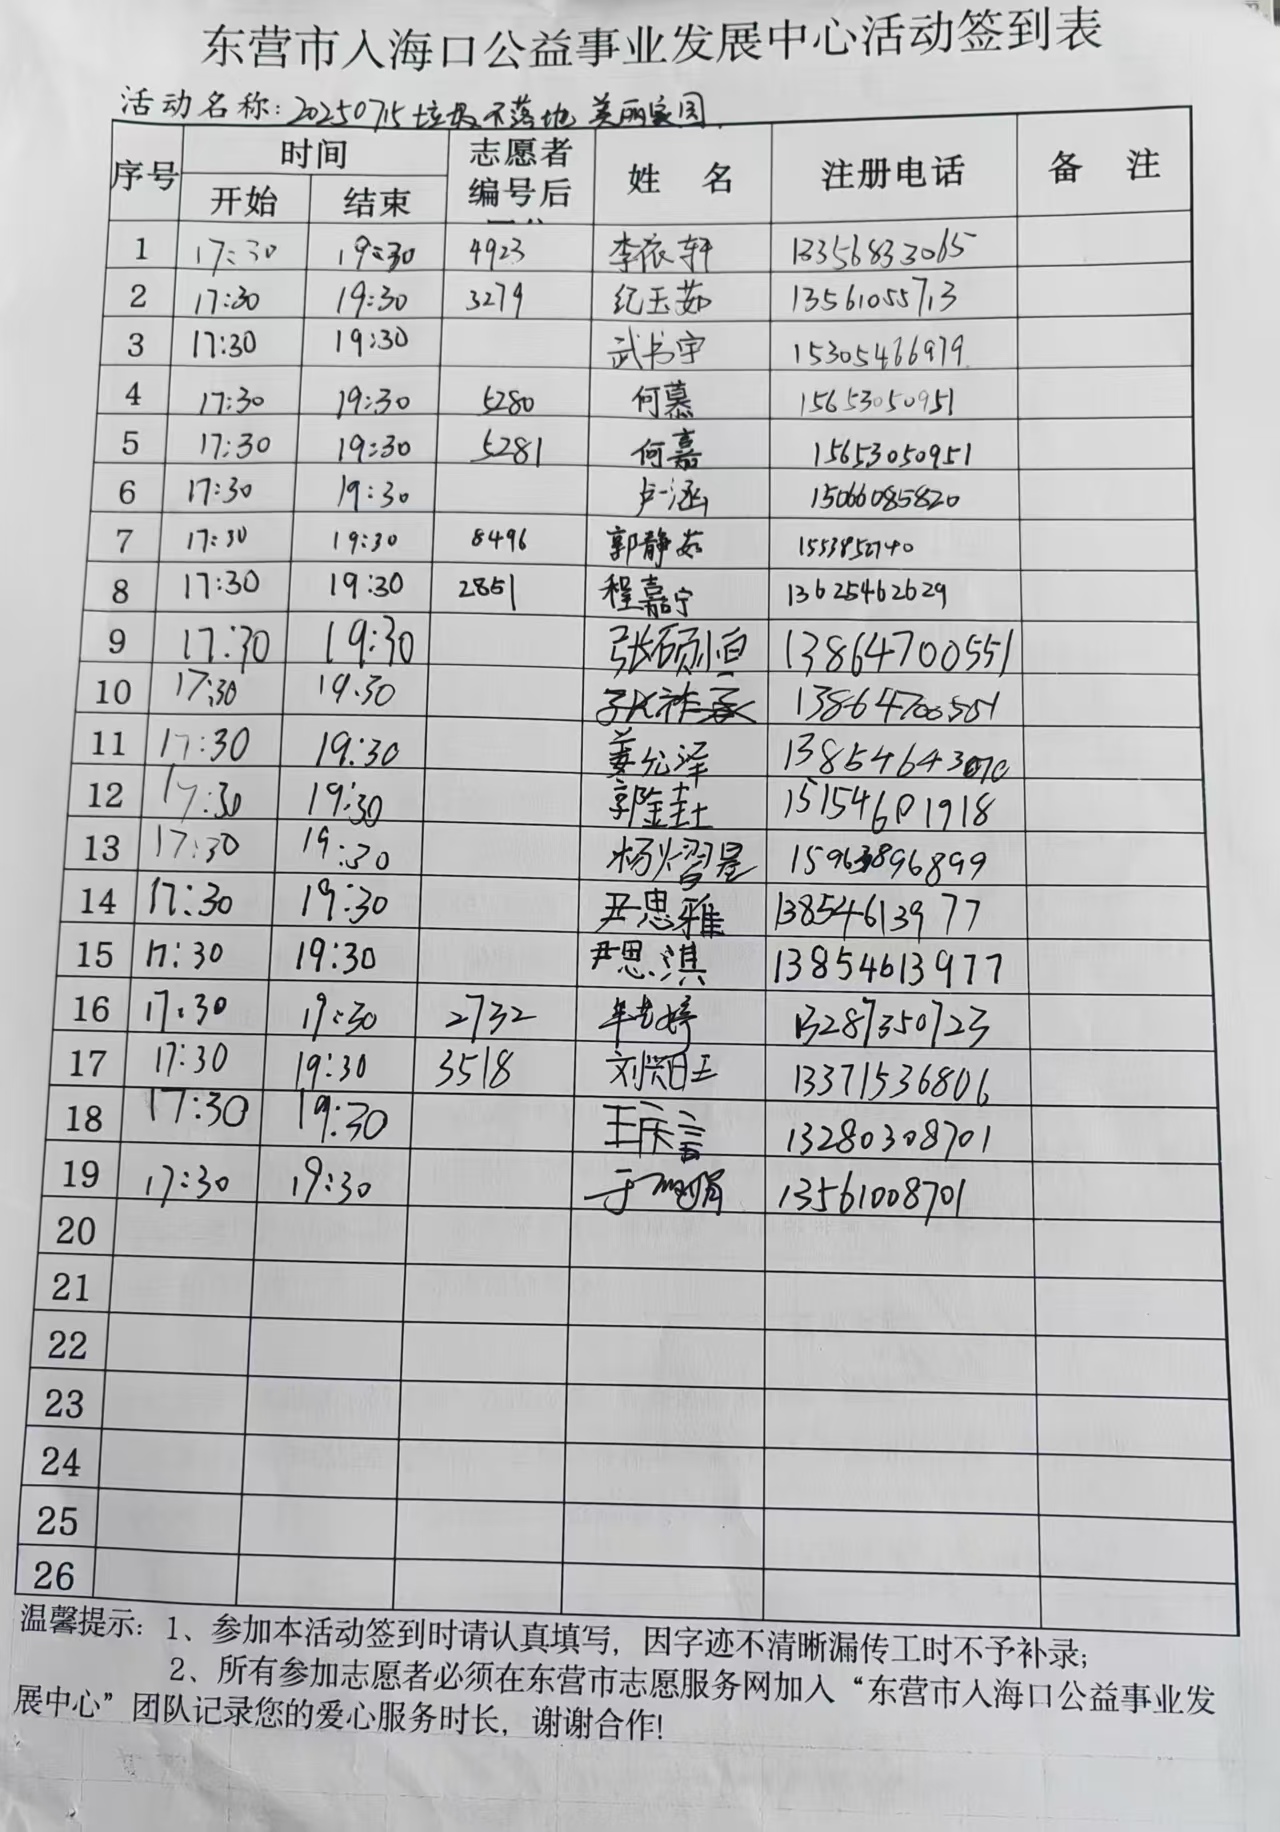 东营市入海口公益事业发展中心活动签到表
活动名称：20250715垃圾不落地 美丽家园
序号 时间 志愿者编号后 姓 名 注册电话 备 注
开始 结束
1 17:30 19:30 4923 李依轩 13356833065
2 17:30 19:30 3279 纪玉茹 13561055713
3 17:30 19:30 武书宇 15305466979
4 17:30 19:30 5280 何慕 15653050951
5 17:30 19:30 5281 何嘉 15653050951
6 17:30 19:30 卢一涵 15066085820
7 17:30 19:30 8496 郭静茹
8 17:30 19:30 2851 程嘉宁 13625462629
9 17:30 19:30 张硕恒 13864700551
10 17:30 19:30 张祚承 13864700551
11 17:30 19:30 姜允泽
12 17:30 19:30 郭金圭 15154601918
13 17:30 19:30 杨熠星 15963896899
14 17:30 19:30 尹思雅 13854613977
15 17:30 19:30 尹思淇 13854613977
16 17:30 19:30 2732 13287350723
17 17:30 19:30 3518 刘兴钰 13371536806
18 17:30 19:30 王庆言 13280308701
19 17:30 19:30 13561008701
20
21
22
23
24
25
26
温馨提示：1、参加本活动签到时请认真填写，因字迹不清晰漏传工时不予补录；
2、所有参加志愿者必须在东营市志愿服务网加入“东营市入海口公益事业发
展中心”团队记录您的爱心服务时长，谢谢合作！